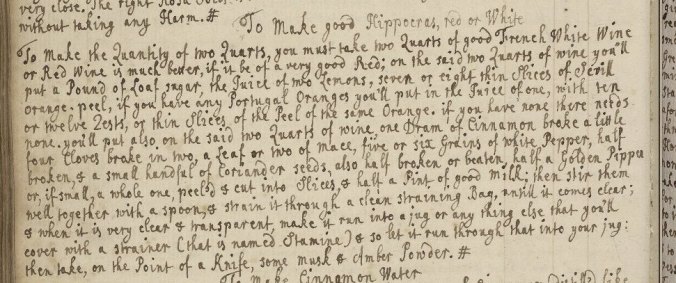 very close. The right Rosa
without taking any Harm. #
To Make good Hippocras, red or White
To Make the Quantity of two Quarts, you must take two Quarts of good French White Wine
or Red Wine is much better, if it be of a very good Red; on the said two Quarts of wine you'll
put a Pound of Loaf sugar, the Juice of two Lemons, seven or eight thin Slices of Sevill
orange-peel, if you have any Portugal Oranges you'll put in the Juice of one, with ten
or twelve Zests, or thin Slices of the Peel of the same Orange. if you have none there needs
none. you'll put also on the said two Quarts of wine one Dram of Cinnamon broke a little
four Cloves broke in two, a Leaf or two of mace, five or six Grains of white Pepper, half
broken, & a small handful of Coriander seeds, also half broken or beaten, half a Golden Pippen
or, if small, a whole one, peel'd & cut into Slices, & half a Pint of good Milk; then stir them
well together with a spoon, & strain it through a clean straining Bag, untill it comes clear;
& when it is very clear & transparent, make it run into a jug or any thing else that you'll
cover with a strainer (that is named Stamine) & so let it run through that into your jug:
then take, on the Point of a Knife, some musk & Amber Powder. #
To Make Cinnamon Water